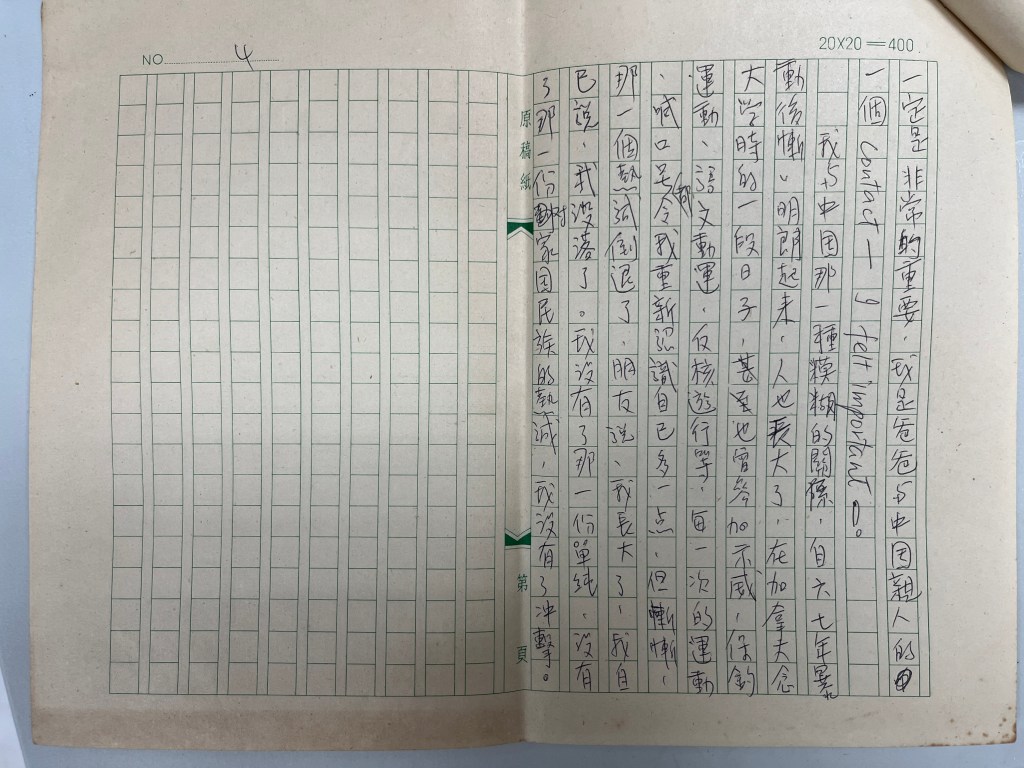 NO. 4
20X20=400
一定是非常的重要，我是爸爸与中国親人的
一個 contact — I felt important。
我与中国那一種模糊的關係，自六七年暴
動後慚〃明朗起来，人也長大了，在加拿大念
大学時的一段日子，甚至也曾参加示威，保釣
運動、語文動運、反核遊行等，每一次的運動
、喊口号都令我重新認識自己多一点，但慚慚，
那一個熱誠倒退了，朋友說、我長大了，我自
己說，我沒落了。我沒有了那一份單純，沒有
了那一份對家国民族的執誠，我沒有了冲擊。
原稿紙
第 頁